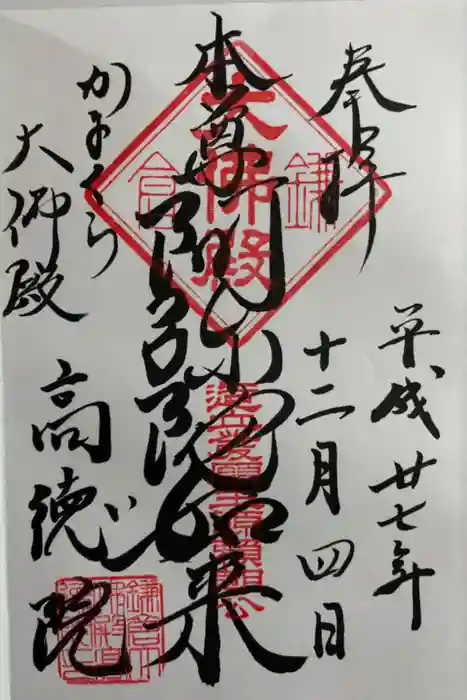 奉拝
平成廿七年
十二月四日
本尊
阿弥陀如来
かまくら
大佛殿
高徳院
大佛殿
鎌倉